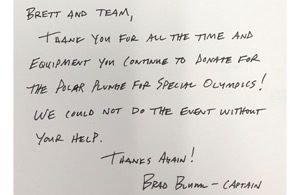 BRETT AND TEAM,
THANK YOU FOR ALL THE TIME AND
EQUIPMENT YOU CONTINUE TO DONATE FOR
THE POLAR PLUNGE FOR SPECIAL OLYMPICS!
WE COULD NOT DO THE EVENT WITHOUT
YOUR HELP.
THANKS AGAIN!
BRAD - CAPTAIN